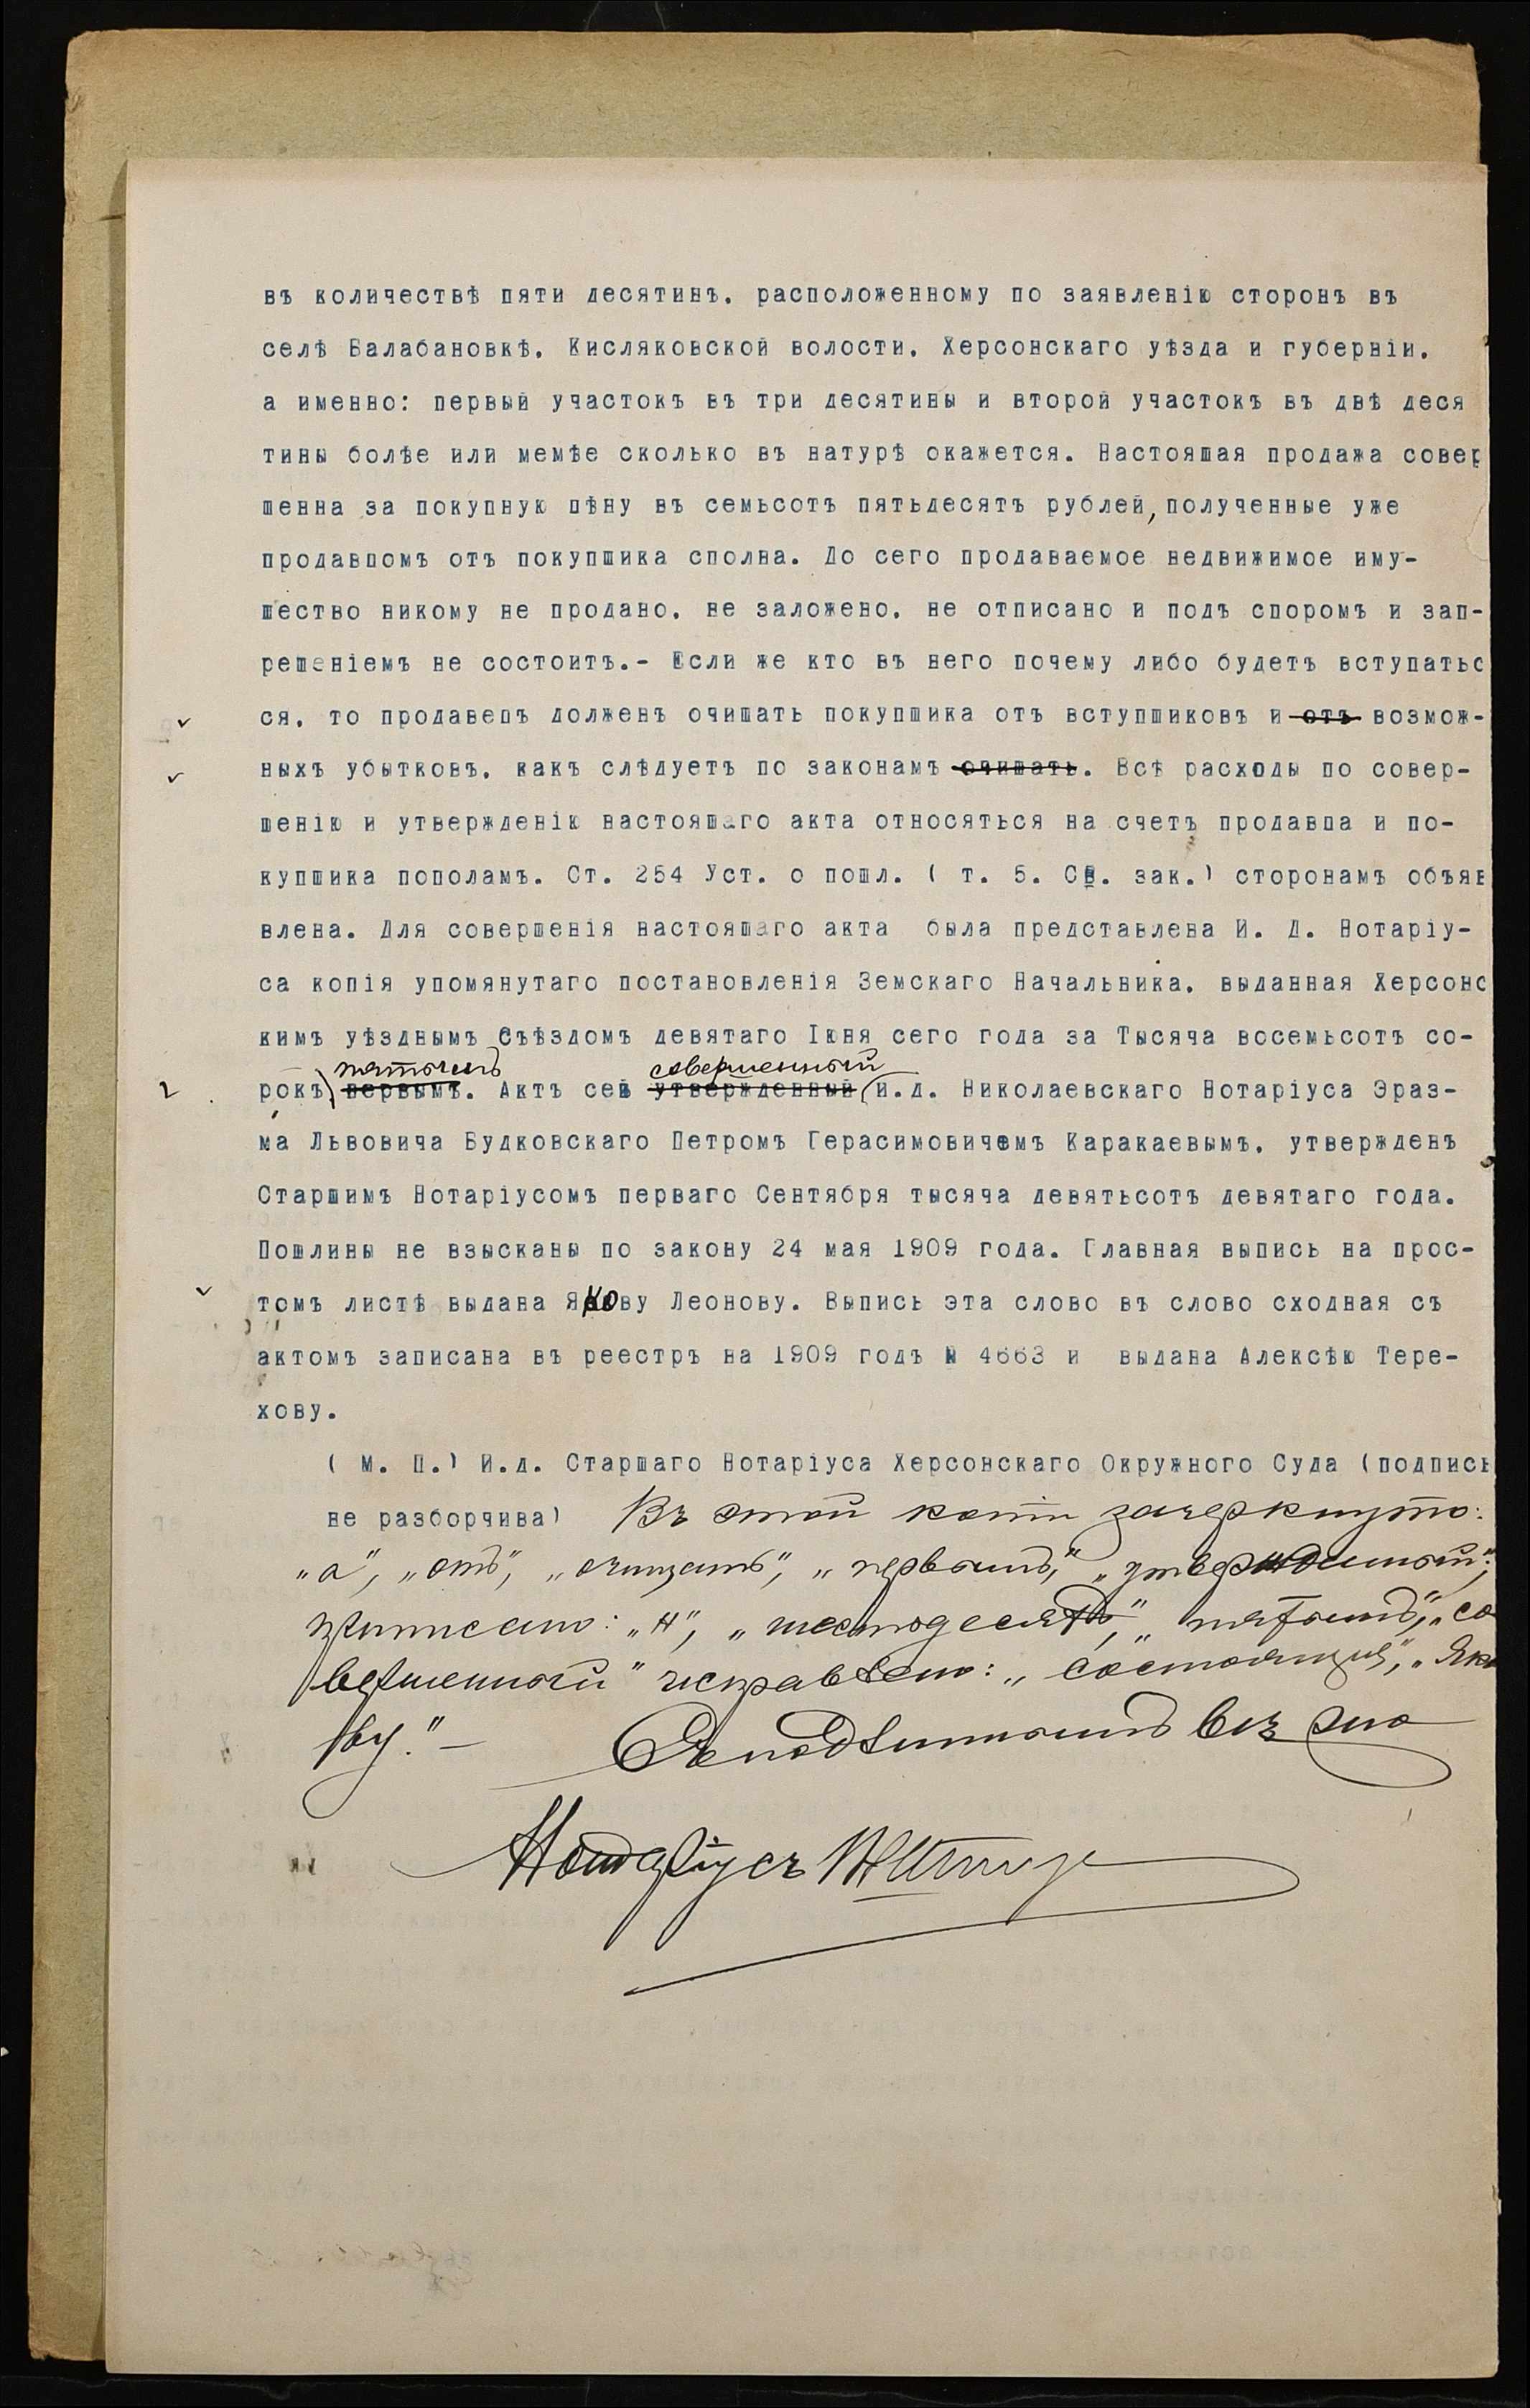 въ количествѣ пяти десятинъ. расположенному по заявленію сторонъ въ
селѣ Балабановкѣ. Кисляковской волости. Херсонскаго уѣзда и губерніи.
а именно: первый участокъ въ три десятины и второй участокъ въ двѣ деся
тины болѣе или мемѣе сколько въ натурѣ окажется. Настояшая продажа совер
шенна за покупную пѣну въ семьсотъ пятьдесятъ рублей, полученные уже
продавпомъ отъ покупшика сполна. До сего продаваемое недвижимое иму-
шество никому не продано. не заложено. не отписано и подъ споромъ и зап-
решеніемъ не состоитъ.- Если же кто въ него почему либо будетъ вступатьс
ся. то продавепъ долженъ очишать покупшика отъ вступшиковъ и отъ возмож-
ныхъ убытковъ. какъ слѣдуетъ по законамъ очишать. Всѣ расходы по совер-
шенію и утвержденію настояшаго акта относяться на счетъ продавпа и по-
купшика пополамъ. Ст. 254 Уст. о пошл. ( т. 5. Св. зак.) сторонамъ объяв
влена. Для совершенія настояшаго акта была представлена И. Д. Нотаріу-
са копія упомянутаго постановленія Земскаго Начальника. выданная Херсонс
кимъ уѣзднымъ Съѣздомъ девятаго Іюня сего года за Тысяча восемьсотъ со-
пятымъ совершенный
рокъ первымъ. Актъ сей утвержденный и.д. Николаевскаго Нотаріуса Эраз-
ма Львовича Будковскаго Петромъ Герасимовичемъ Каракаевымъ. утвержденъ
Старшимъ Нотаріусомъ перваго Сентября тысяча девятьсотъ девятаго года.
Пошлины не взысканы по закону 24 мая 1909 года. Главная выпись на прос-
томъ листѣ выдана Якову Леонову. Выпись эта слово въ слово сходная съ
актомъ записана въ реестръ на 1909 годъ № 4663 и выдана Алексѣю Тере-
хову.
( М. П.) И.д. Старшаго Нотаріуса Херсонскаго Окружного Суда (подпись
не разборчива) Въ этой копіи зачеркнуто:
„а", „отъ", „очищать", „первымъ", „утвержденный";
приписано: „н", „шестьдесятъ", „пятымъ", „со
вершенный" исправлено: „состоящія", „Яко
ву." — Съ подлиннымъ вѣрно
Нотаріусъ